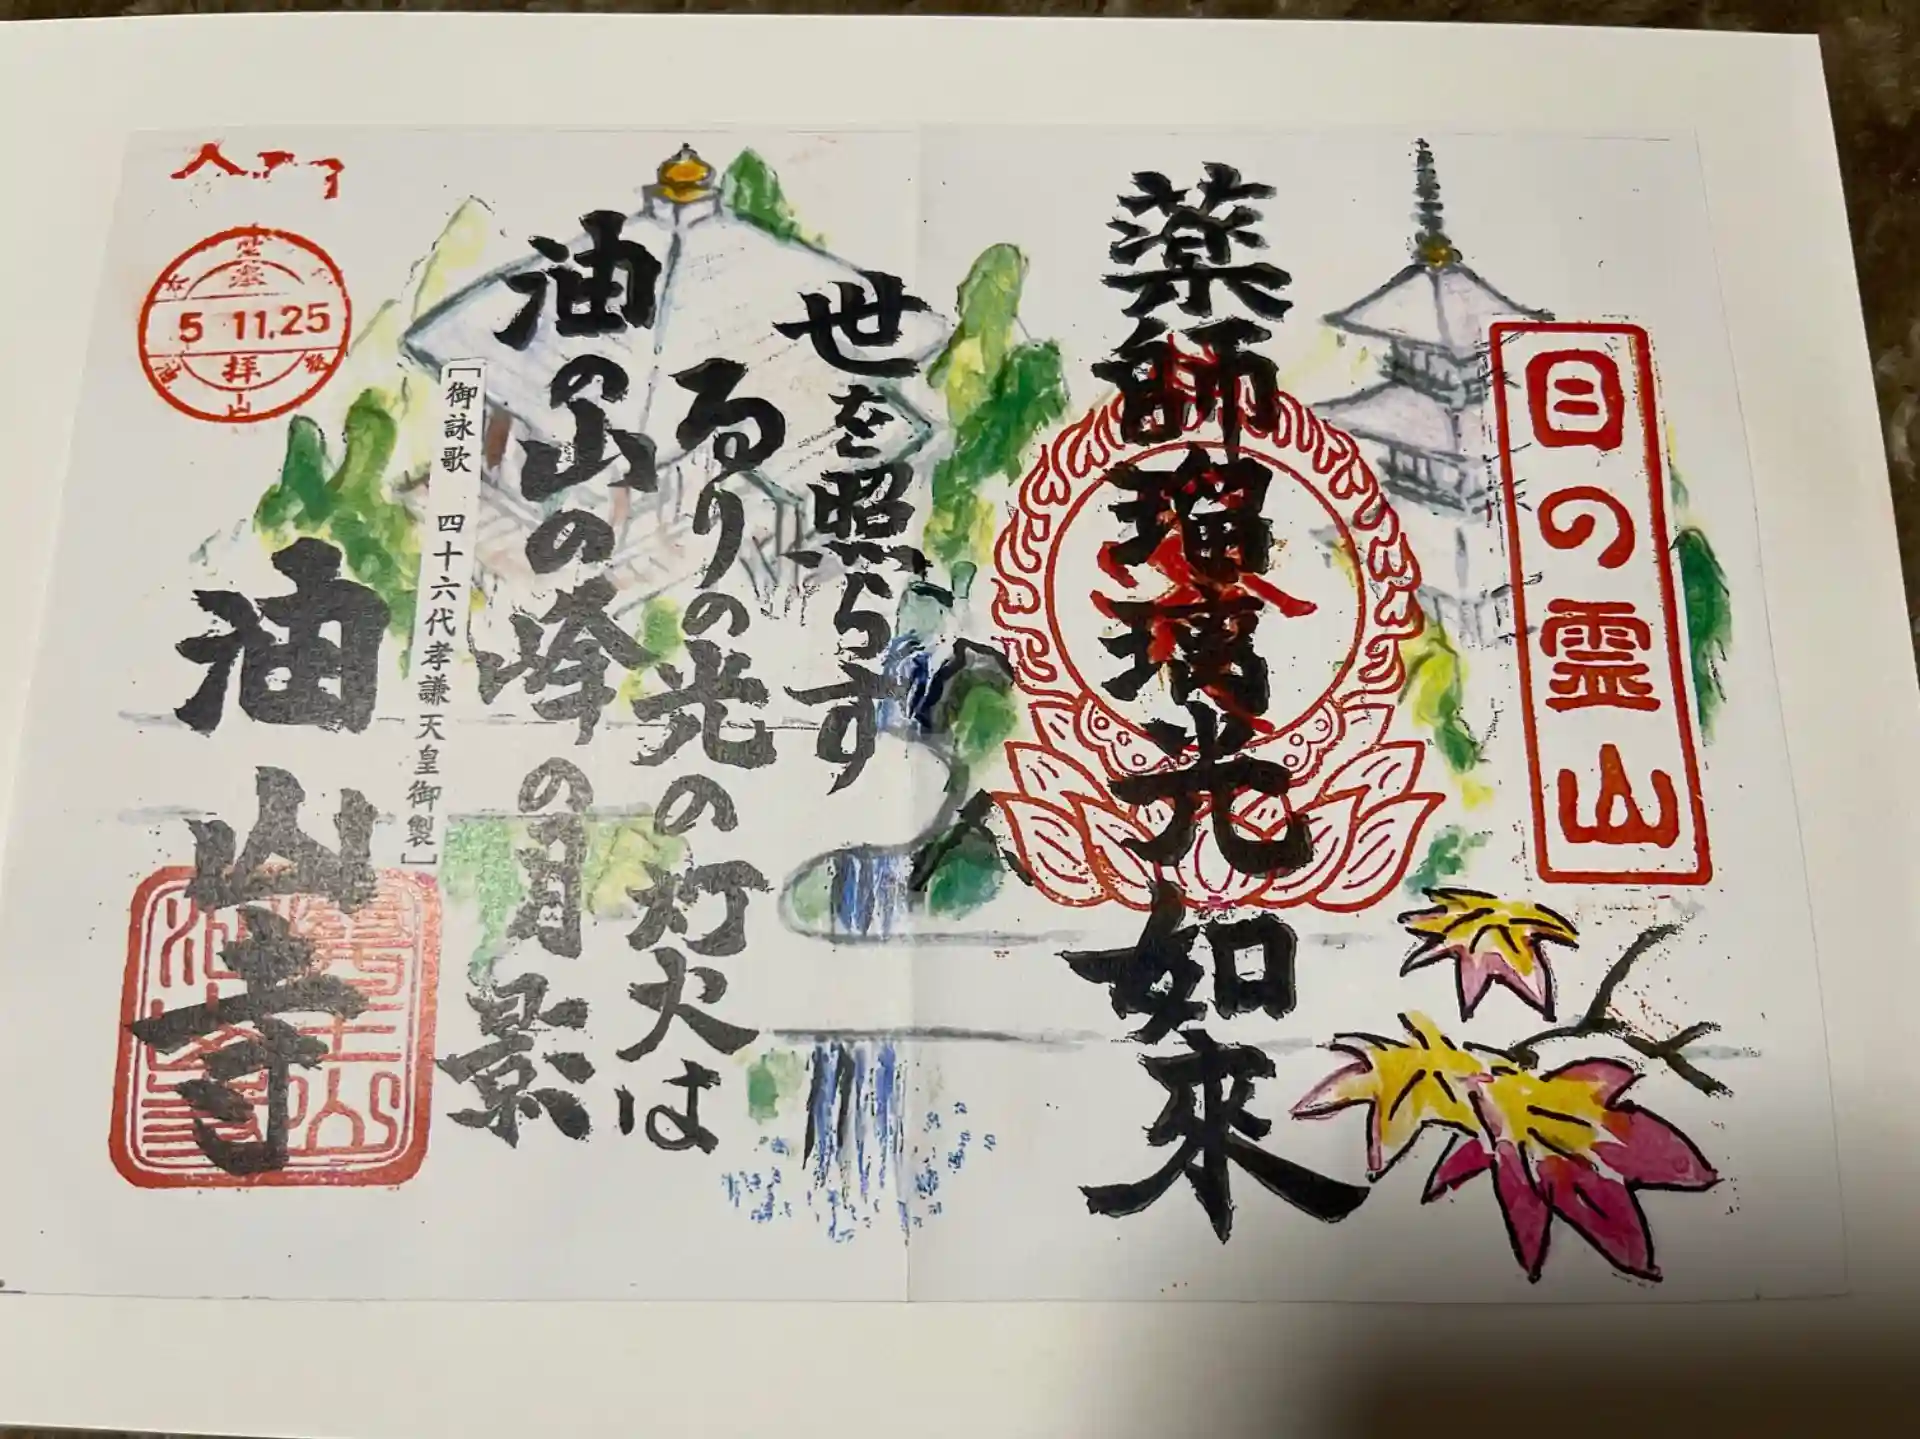 目の霊山
薬師瑠璃光如来
世を照らす
るりの光の灯火は
油の山の峰の月影
[御詠歌 四十六代孝謙天皇御製]
油山寺
5 11.25
拝
山